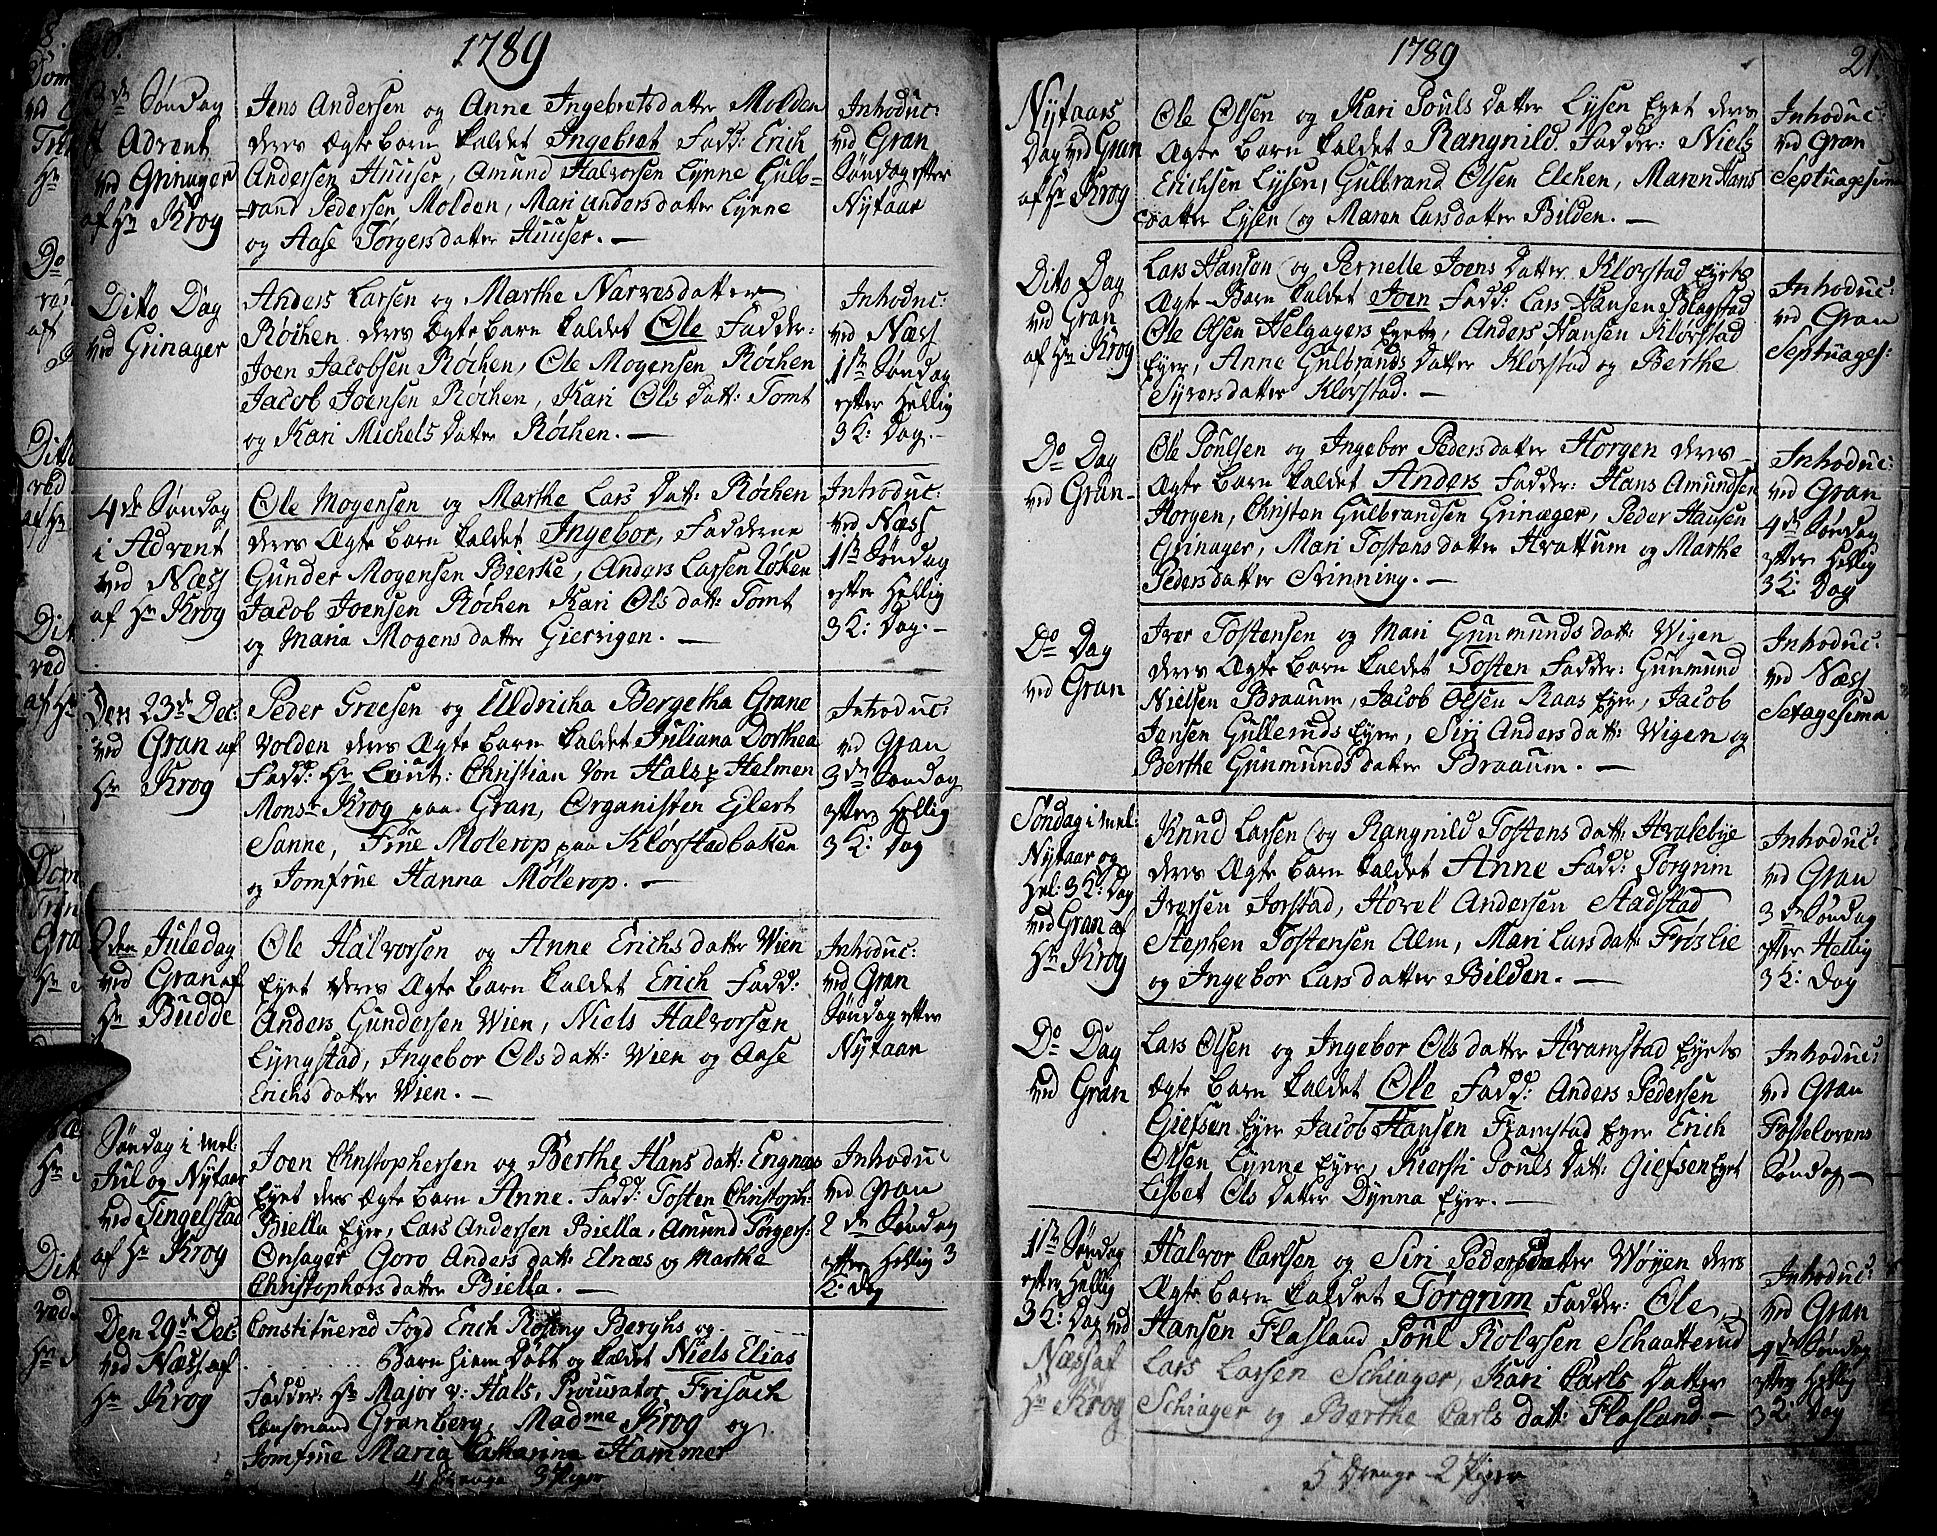 1789
3de Søndag
i Advent
ved Grinager
af Hr Krog
Jens Andersen og Anne Ingebretsdatter Molden
deres Ægte Barn kaldet Ingebret Fadd: Erich
Andersen Huuser, Amund Halvorsen Lynne Gulb=
=rand Pedersen Molden, Mari Andersdatter Lynne
og Aase Torgersdatter Huuser. —
Introduc:
ved Gran
Søndag efter
Nytaar
Ditto Dag
ved Grinager
Anders Larsen og Marthe Narvesdatter
Røchen deres Ægte Barn kaldet Ole Fadder:
Joen Jacobsen Røchen, Ole Mogensen Røchen
Jacob Joensen Røchen, Kari Ols Datt: Tomt
og Kari Michels Datter Røchen. —
Introduc:
ved Næss
1ste Søndag
efter Hellig
3 K: Dag. —
4de Søndag
i Advent
ved Næss
af Hr Krog
Ole Mogensen og Marthe Lars Datt: Røchen
deres Ægte Barn kaldet Ingebor, Fadderne
Gunder Mogensen Bierke, Anders Larsen Løken
Jacob Joensen Røchen Kari Ols datt: Tomt
og Maria Mogens datter Giervigen. —
Introduc:
ved Næss
1ste Søndag
efter Hellig
3 K: Dag. —
Den 23de Dec:
ved Gran af
Hr Krog
Peder Greesen og Uldricha Bergetha Grane
Volden deres Ægte Barn kaldet Juliana Dorthea
Fadd: Hr Lieut: Christian Von Hals, Halmen
Monsr Krog paa Gran, Organisten Ejlert
Sanne, Frue Molerop paa Klørstadbakken
og Jomfrue Hanna Mølerop. —
Introduc:
ved Gran
3de Søndag
efter Hellig
3 K: Dag
2den Juledag
ved Gran af
Hr Budde
Ole Halvorsen og Anne Erichs datter Wien
Eyet deres Ægte Barn kaldet Erich Fadd:
Anders Gundersen Wien, Niels Halvorsen
Lyngstad, Ingebor Ols datt: Wien og Aase
Erichs datter Wien. —
Introduc:
ved Gran
Søndag efter
Nytaar
Søndag i mel:
Jul og Nytaar
ved Tingelstad
af Hr Krog
Joen Christophersen og Berthe Hans datt: Engnæs
Eyet deres Ægte Barn Anne. Fadd: Tosten Christoph:
Biella Eyer, Lars Andersen Biella, Amund Torgers:
Onsager Goro Anders datt: Elnæs og Marthe
Christophersdatter Biella. —
Introduc:
ved Gran
2de Søndag
efter Hellig 3
K: Dag
Den 29de Dec:
ved Næss af
Hr Krog
Constituered Fogd Erich Rosing Berghs og
Barn hiem Døbt og kaldet Niels Elias
Fadder: Hr Major v: Hals, Procurator Frisach
Lensmand Granberg, Madme Krog og
Jomfrue Maria Catharina Hammer
4 Drenge 3 Piger
1789
21.
Nytaars
Dag ved Gran
af Hr Krog
Ole Olsen og Kari Pouls Datter Lysen Eyet deres
Ægte Barn kaldet Rangnild. Fadder: Niels
Erichsen Lysen, Gulbrand Olsen Elchen, Maren Hans
Datter Lysen og Maren Larsdatter Bilden. —
Introduc:
ved Gran
Septuagesima
Ditto Dag
ved Gran
af Hr Krog
Lars Hansen og Pernelle Joens Datter Klørstad Eyets
Ægte Barn kaldet Joen Fadd: Lars Hansen Blagstad
Ole Olsen Helgagers Eyete, Anders Hansen Klørstad
Eyer, Anne Gulbrands Datter Klørstad og Berthe
Syversdatter Klørstad. —
Introduc:
ved Gran
Septuages:
Do Dag
ved Gran
Ole Poulsen og Ingebor Pedersdatter Horgen deres
Ægte Barn kaldet Anders Fadder: Hans Amundsen
Horgen, Christen Gulbrandsen Grinæger, Peder Hansen
Grinager, Mari Tostens datter Hvattum og Marthe
Peders datter Svinning. —
Introduc:
ved Gran
4de Søndag
efter Hellig
3 K: Dag
Do Dag
ved Gran
Iver Tostensen og Mari Gunmunds datt: Wigen
deres Ægte Barn kaldet Tosten Fadder: Gunmund
Nielsen Braaum, Jacob Olsen Raas Eyer, Jacob
Jensen Gullerud Eyer, Siri Anders datt: Wigen og
Berthe Gunmunds datter Braaum. —
Introduc:
ved Næss
Sexagesima
Søndag i mel:
Nytaar og
Hel: 3 K: Dag
ved Gran af
Hr Krog
Knud Larsen og Rangnild Tostens datt: Hvalebye
deres Ægte Barn kaldet Anne Fadd: Torgrim
Iversen Jorstad, Hovel Andersen Stadstad
Stephen Tostensen Alm, Mari Lars datt: Frøslie
og Ingebor Lars datter Bilden. —
Introduc:
ved Gran
3de Søndag
efter Hellig
3 K: Dag
Do Dag
ved Gran
Lars Olsen og Ingebor Ols datter Framstad Eyets
Ægte Barn kaldet Ole Fadd: Anders Pedersen
Giefsen Eyer Jacob Hansen Framstad Eyer Erich
Olsen Lynne Eyer, Kiersti Pouls Datt: Giefsen Eyet
Lisbet Ols Datter Dynna Eyer. —
Introduc:
ved Gran
Fastelavens
Søndag —
1ste Søndag
efter Hellig
3 K: Dag ved
Næss af
Hr Krog
Halvor Carlsen og Siri Pedersdatter Wøyen deres
Ægte Barn kaldet Torgrim Fadder: Ole
Hansen Flasland Poul Rolvsen Schaatterud
Lars Larsen Schiager, Kari Carls Datter
Schiager og Berthe Carls datt: Flasland. —
Introduc:
ved Gran
4de Søndag
efter Hellig
3 K: Dag
5 Drenge 2 Piger